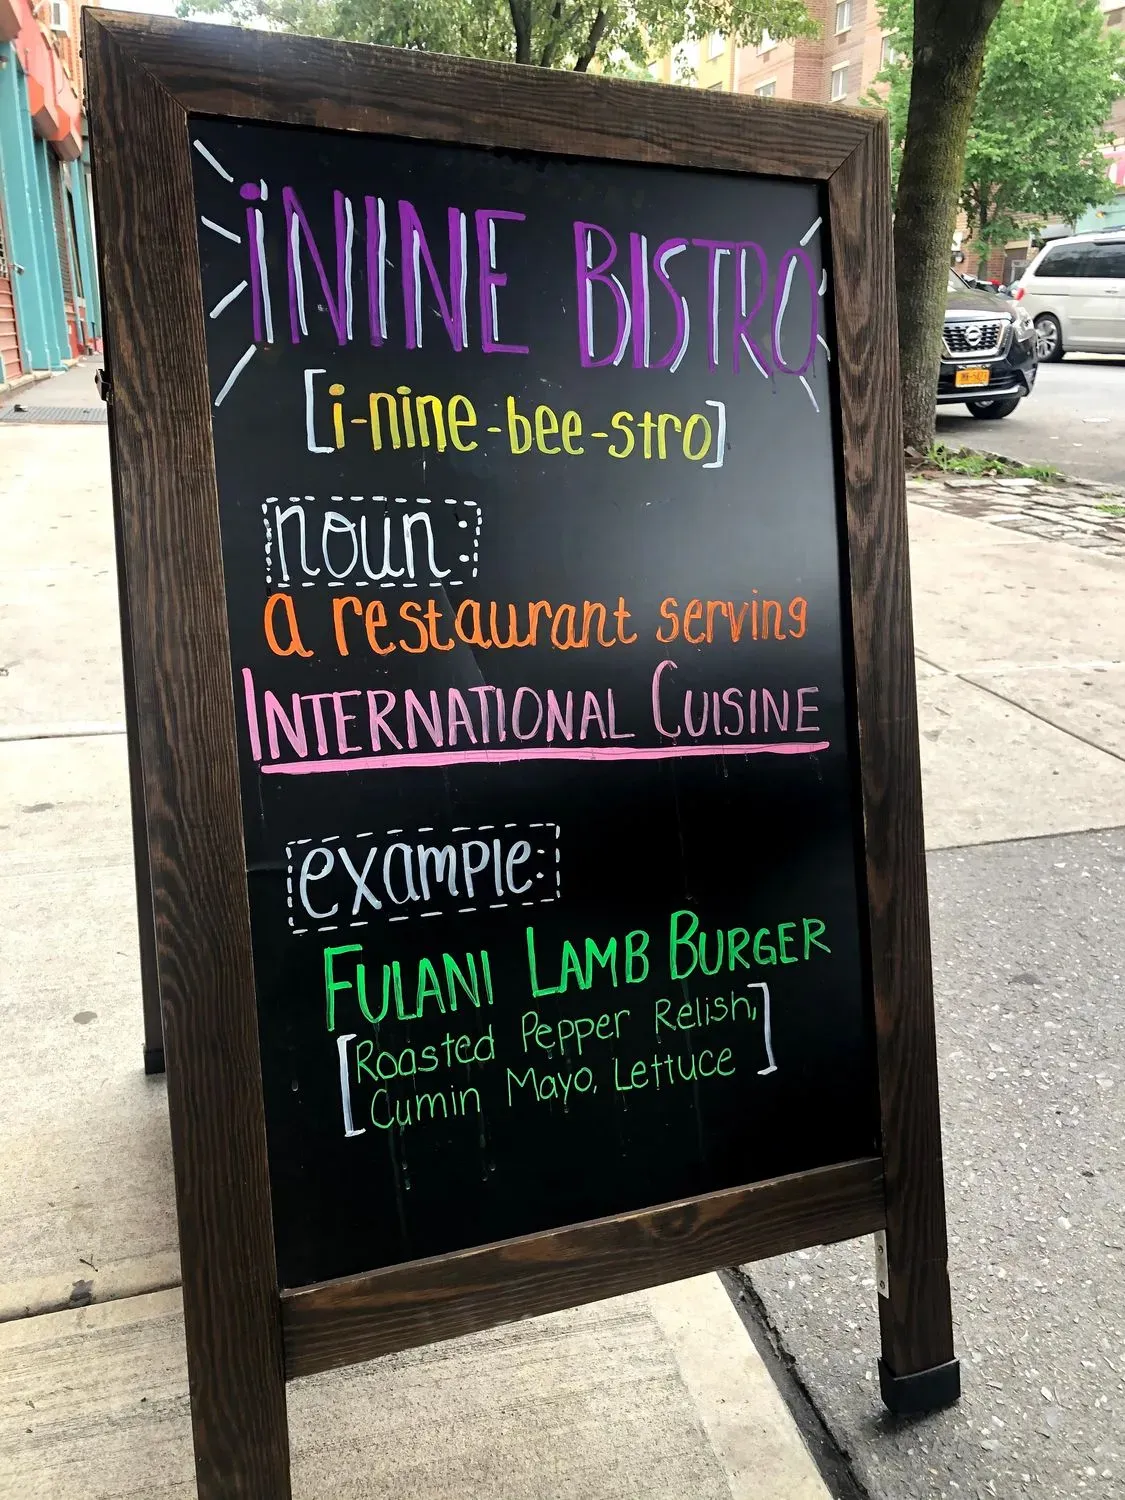 iNINE BISTRO
[i-nine-bee-stro]
noun:
a restaurant serving
INTERNATIONAL CUISINE
example:
FULANI LAMB BURGER
[Roasted Pepper Relish,
Cumin Mayo, Lettuce]